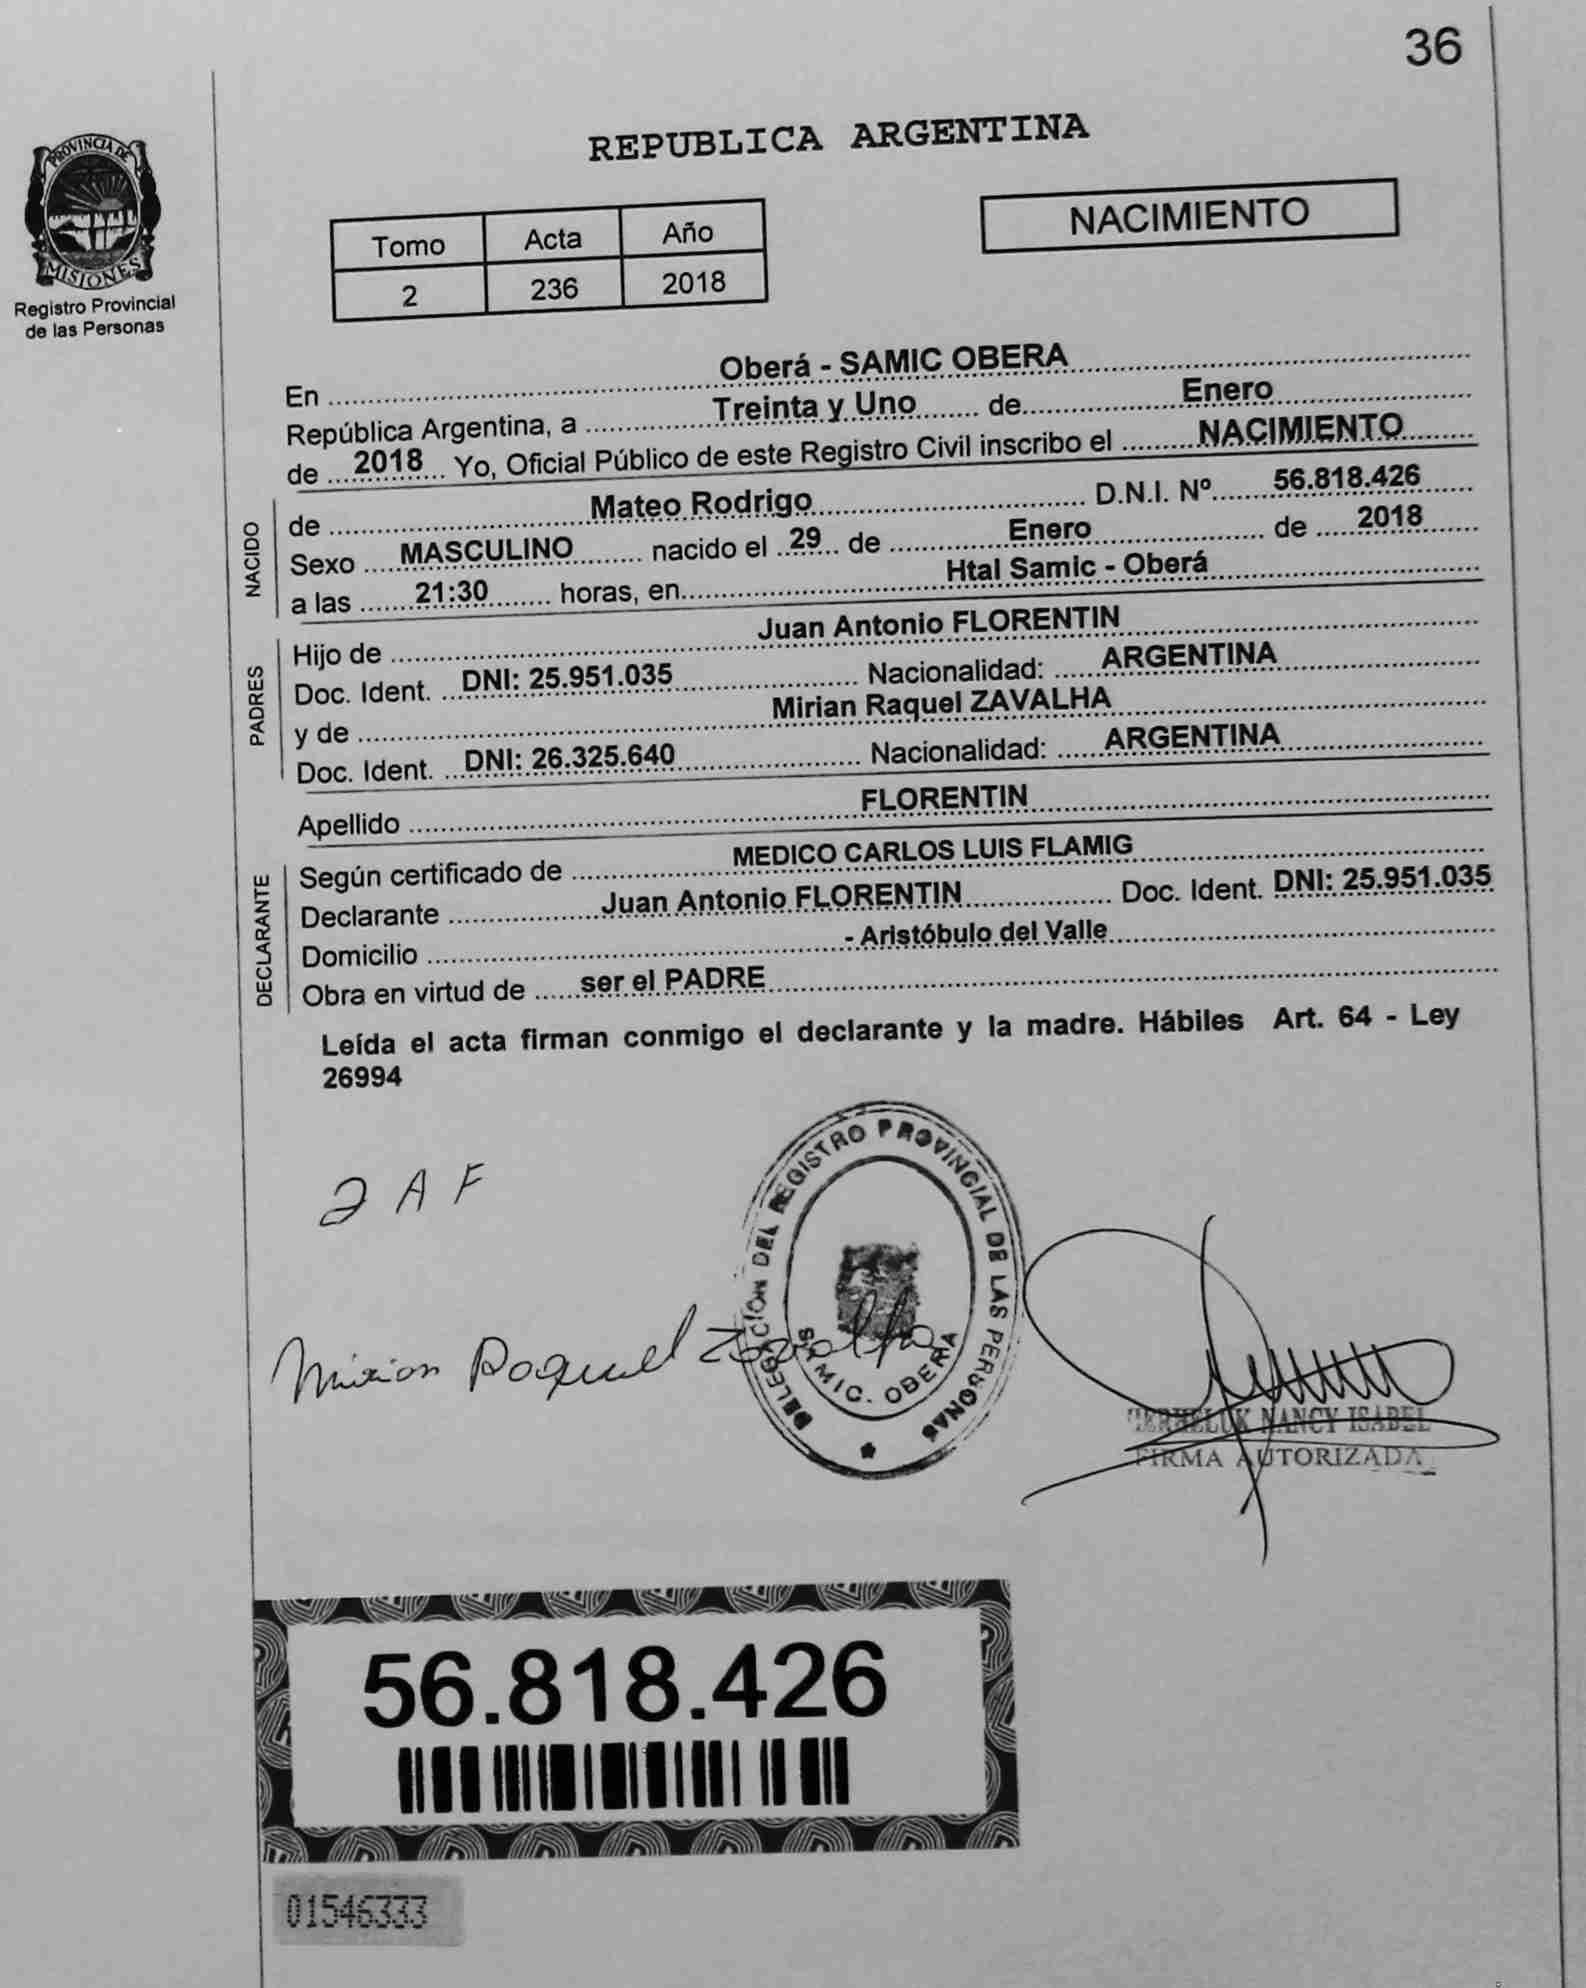 36
PROVINCIA DE
MISIONES
Registro Provincial
de las Personas
REPUBLICA ARGENTINA
Tomo Acta Año
2 236 2018
NACIMIENTO
En Oberá - SAMIC OBERA
República Argentina, a Treinta y Uno de Enero
de 2018 Yo, Oficial Público de este Registro Civil inscribo el NACIMIENTO
NACIDO
de Mateo Rodrigo D.N.I. Nº 56.818.426
Sexo MASCULINO nacido el 29 de Enero de 2018
a las 21:30 horas, en Htal Samic - Oberá
PADRES
Hijo de Juan Antonio FLORENTIN
Doc. Ident. DNI: 25.951.035 Nacionalidad: ARGENTINA
y de Mirian Raquel ZAVALHA
Doc. Ident. DNI: 26.325.640 Nacionalidad: ARGENTINA
Apellido FLORENTIN
DECLARANTE
Según certificado de MEDICO CARLOS LUIS FLAMIG
Declarante Juan Antonio FLORENTIN Doc. Ident. DNI: 25.951.035
Domicilio - Aristóbulo del Valle
Obra en virtud de ser el PADRE
Leída el acta firman conmigo el declarante y la madre. Hábiles Art. 64 - Ley
26994
J A F
DELEGACIÓN DEL REGISTRO PROVINCIAL DE LAS PERSONAS
SAMIC. OBERA
Mirian Raquel Zavalha
NANCY ISABEL
FIRMA AUTORIZADA
56.818.426
01546333